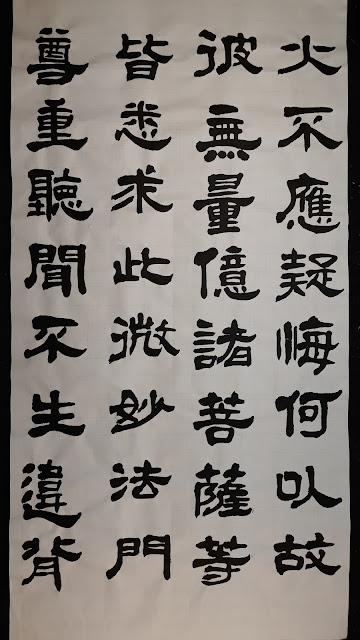 火不應疑悔何以故
彼無量億諸菩薩等
皆悉求此微妙法門
尊重聽聞不生違背